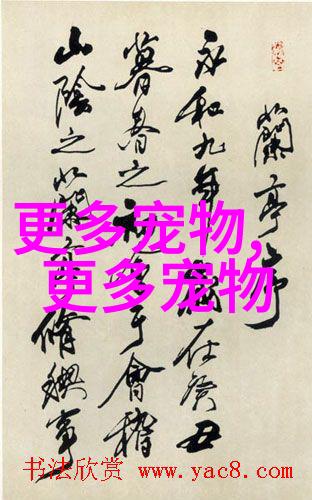 蘭亭序
永和九年歲在癸丑
暮春之初會于會稽
山陰之蘭亭脩禊事
更多宠物,
更多宠物
书法欣赏 www.yac8.com